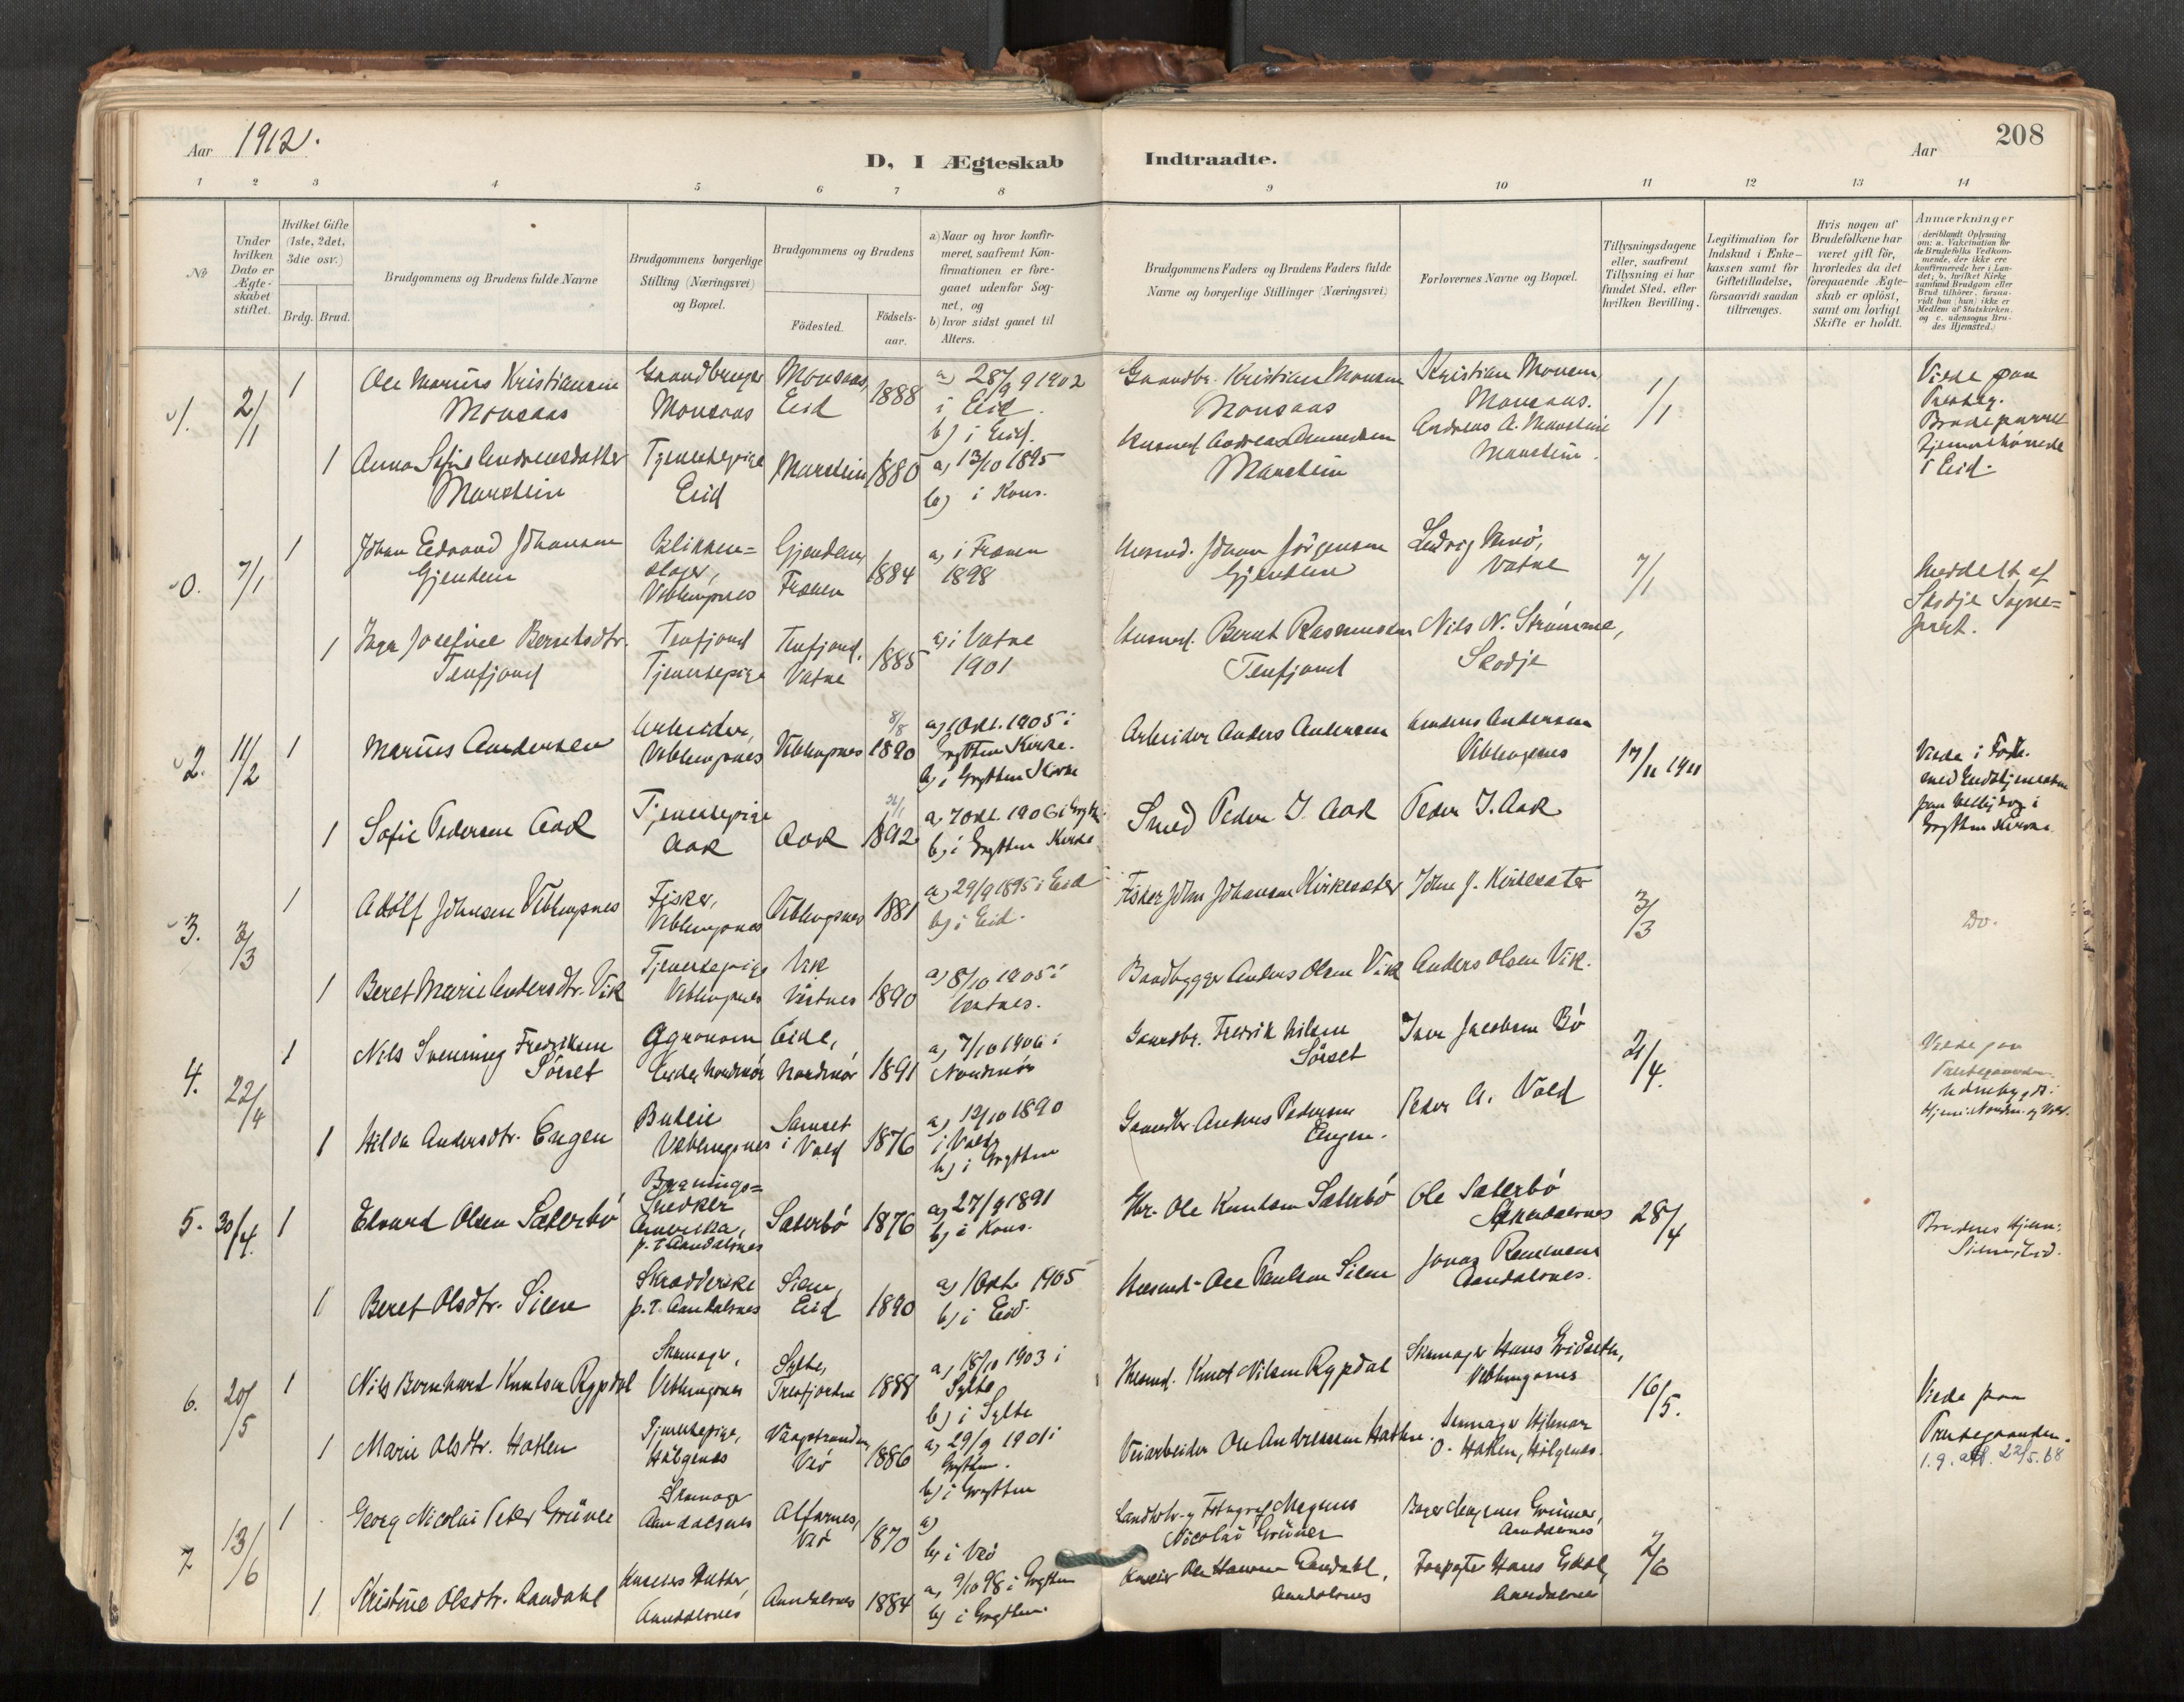 Aar 1912.
D, I Ægteskab Indtraadte.
Aar 208
1 2 3 4 5 6 7 8 9 10 11 12 13 14
No
Under hvilken Dato er Ægteskabet stiftet.
Hvilket Gifte (1ste, 2det, 3die osv.)
Brdg. Brud.
Brudgommens og Brudens fulde Navne
Brudgommens borgerlige Stilling (Næringsvei) og Bopæl.
Brudgommens og Brudens
Födested.
Födsels-aar.
a) Naar og hvor konfir-
meret, saafremt Kon-
firmationen er fore-
gaaet udenfor Sog-
net, og
b) hvor sidst gaaet til
Alters.
Brudgommens Faders og Brudens Faders fulde
Navne og borgerlige Stillinger (Næringsvei)
Forlovernes Navne og Bopæl.
Tillysningsdagene
eller, saafremt
Tillysning ei har
fundet Sted, efter
hvilken Bevilling.
Legitimation for
Indskud i Enke-
kassen samt for
Giftetilladelse,
forsaavidt saadan
tiltrænges.
Hvis nogen af
Brudefolkene har
været gift för,
hvorledes da det
foregaaende Ægte-
skab er oplöst,
samt om lovligt
Skifte er holdt.
Anmærkninger
(deriblandt Oplysning
om: a. Vakcination for
de Brudefolks Vedkom-
mende, der ikke ere
konfirmerede her i Lan-
det; b. hvilket Kirke-
samfund Brudgom eller
Brud tilhörer, forsaa-
vidt han (hun) ikke er
Medlem af Statskirken,
og c. udensogns Bru-
des Hjemsted.)
1. 2/1 1 Ole Marius Kristiansen Monsaas Gaardbruger Monsaas Monsaas, Eid 1888 a) 28/9 1902 i Eid. b) i Eid. Gaardbr. Kristian Monsen Monsaas Kristian Monsen, Monsaas. 1/1 Viede paa Præsteg. Brudeparret hjemmehørende i Eid.
1 Anna Sofie Andreasdatter Marstein Tjenestepige Eid Marstein 1880 a) 13/10 1895 b) i Kors. Husmd. Andreas Marstein Andreas A. Marstein Marstein.
0. 7/1 1 Johan Edvard Johansen Gjendem Blikken-slager, Veblungsnes Gjendem, Frænen 1884 a) i Frænen 1898 Husmd. Johan Jørgensen Gjendem Ludvig Vatne 7/1 Meddelt af Skodje Sogne-prest.
1 Inga Josefine Berntsdtr. Tenfjord Tenfjord Tjenestepige Tenfjord, Vatne 1885 a) i Vatne 1901 Husmd. Bernt Rasmussen Tenfjord Nils N. Strømme, Skodje
2. 11/2 1 Marius Andersen Arbeider, Veblungsnes Veblungsnes 8/8 1890 a) 1 Okt. 1905 i Grytten Kirke. b) i Grytten Kirke Arbeider Anders Andersen Anders Andersen Veblungsnes 17/11 1911 Viede i
Grytten Kirke.
1 Sofie Pedersen Aak Tjenestepige Aak Aak 1892 a) 7 Okt. 1906 i Grytt. b) i Grytten Kirke Smed Peder J. Aak Peder J. Aak
3. 3/3 1 Adolf Johnsen Veblungsnes Fisker, Veblungsnes Veblungsnes 1881 a) 29/9 1895 i Eid b) i Eid. Fisker John Johansen Kirkesæter John J. Kirkesæter 3/3 Do.
1 Beret Marie Andersdtr. Vik Tjenestepige Veblungsnes Vik Vestnes 1890 a) 8/10 1905 i Vestnes. Baadbygger Anders Olsen Vik Anders Olsen Vik.
4. 22/4 1 Nils Svenning Fredriksen Sørset Agronom Eide, Nordmør Eide, Nordmør 1891 a) 7/10 1906 i Nordmør Gaardbr. Fredrik Nilsen Sørset Iver Jacobsen Bø 21/4. Viede paa Præstegaarden.
1 Hilda Andersdtr. Engen Budeie Veblungsnes Samset i Vold 1876 a) 12/10 1890 i Vold b) i Grytten Gaardbr. Anders Pedersen Engen. Peder A. Vold
5. 30/4. 1 Edvard Olsen Sæterbø Bygnings-snedker Amerika, p.t. Aandalsnes Sæterbø 1876 a) 27/9 1891 b) i Kors. Gbr. Ole Knudsen Sæterbø Ole Sæterbø Aandalsnes 28/4 Brudens Hjem: Siem, Eid.
1 Beret Olsdtr. Siem Skrædderske p.t. Aandalsnes Siem, Eid 1890 a) 1 Okt. 1905 b) i Eid. Husmd. Ole Paulsen Siem Jonas Remmem Aandalsnes.
6. 20/5 1 Nils Bernhard Knutsen Rypdal Skomager, Veblungsnes Sylte, Tresfjorden 1888 a) 18/10 1903 i Sylte b) i Sylte Husmd. Knut Nilsen Rypdal Skomager Hans Eidseth, Veblungsnes 16/5. Viede paa Præstegaarden.
1.9. att. 22/5.68
1 Marie Olsdtr. Hatlen Tjenestepige, Holgenes Vaagstranden, Veø 1886 a) 29/9 1901 i Grytten. b) i Grytten Veiarbeider Ole Andreassen Hatlen. Skomager Hilmar O. Hatlen, Holgenes.
7. 13/6 1 Georg Nicolai Peter Grüner Skomager Aandalsnes Alfarnes, Veø 1870 a) b) i Veø Landhdl. og Fotograf Magnus Nicolai Grüner Bager Magnus Grüner, Aandalsnes 2/6
1 Kristine Olsdtr. Aandahl Aandalsnes Aandalsnes 1884 a) 9/10 98 i Grytten b) i Grytten. Ole Hansen Aandahl, Aandalsnes Hans Aandalsnes